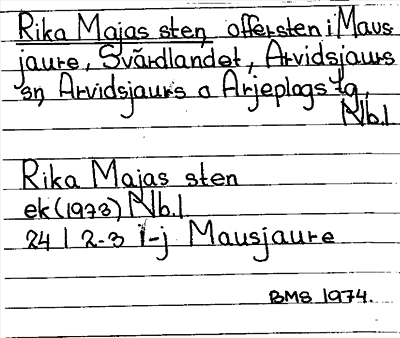 Rika Majas sten, offersten i Maus
jaure, Svärdlandet, Arvidsjaurs
sn, Arvidsjaurs o Arjeplogs tg,
Nb.l
Rika Majas sten
ek (1973) Nb.l
24 I 2-3 i-j Mausjaure
BMS 1974.